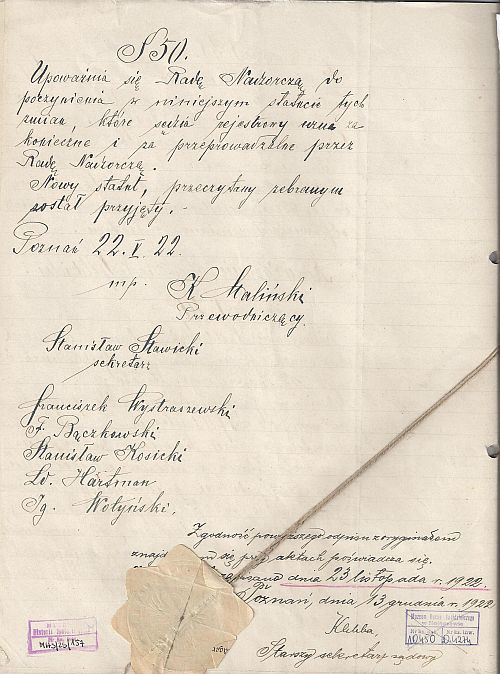 § 50.
Upoważnia się Radę Nadzorczą do
poczynienia w niniejszym statucie tych
zmian, które sędzia rejestrowy uzna za
konieczne i są przeprowadzalne przez
Radę Nadzorczą.
Nowy statut, przeczytany zebranym
został przyjęty. -
Poznań 22. I. 22.
mp. K Maliński
Przewodniczący.
Stanisław Sławicki
sekretarz
Franciszek Wystraszewski
F. Bączkowski
Stanisław Kosicki
Ld. Hartman
Ig. Wołyński.
Zgodność powyższego odpisu z oryginałem
się przy aktach poświadcza się.
dnia 23 listopada r. 1922.
Poznań, dnia 13 grudnia r. 1922
Starszy sekretarz sądowy
MHS/26/157
10450